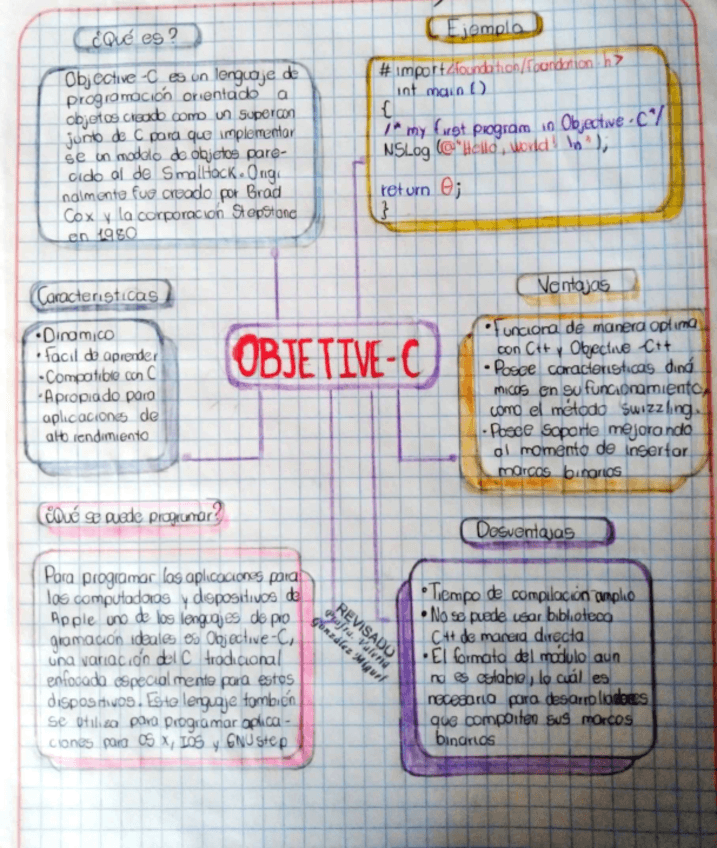 ¿Qué es?
Objective-C es un lenguaje de
programación orientado a
objetos creado como un supercon
junto de C para que implementar
se un modelo de objetos pare-
cido al de Smalltack. Origi
nalmente fue creado por Brad
Cox y la corporación StepStone
en 1980
Ejemplo
# import <foundation/foundation.h>
int main ()
{
/* my first program in Objective-C */
NSLog (@"Hello, world! \n");
return 0;
}
Caracteristicas
• Dinamico
• Facil de aprender
• Compatible con C
• Apropiado para
aplicaciones de
alto rendimiento
OBJETIVE-C
Ventajas
• Funciona de manera optima
con C++ y Objective-C++
• Posee caracteristicas diná
micas en su funcionamiento,
como el método swizzling.
• Posee soporte mejorando
al momento de insertar
marcos binarios
¿Qué se puede programar?
Para programar las aplicaciones para
las computadoras y dispositivos de
Apple uno de los lenguajes de pro
gramación ideales es Objective-C,
una variación del C tradicional
enfocada especialmente para estos
dispositivos. Este lenguaje también
se utiliza para programar aplica-
ciones para OS X, IOS y GNUstep
REVISADO
Profra. Valeria
González Miguel
Desventajas
• Tiempo de compilación amplio
• No se puede usar biblioteca
C++ de manera directa
• El formato del módulo aun
no es estable, lo cuál es
necesario para desarrolladores
que comparten sus marcos
binarios